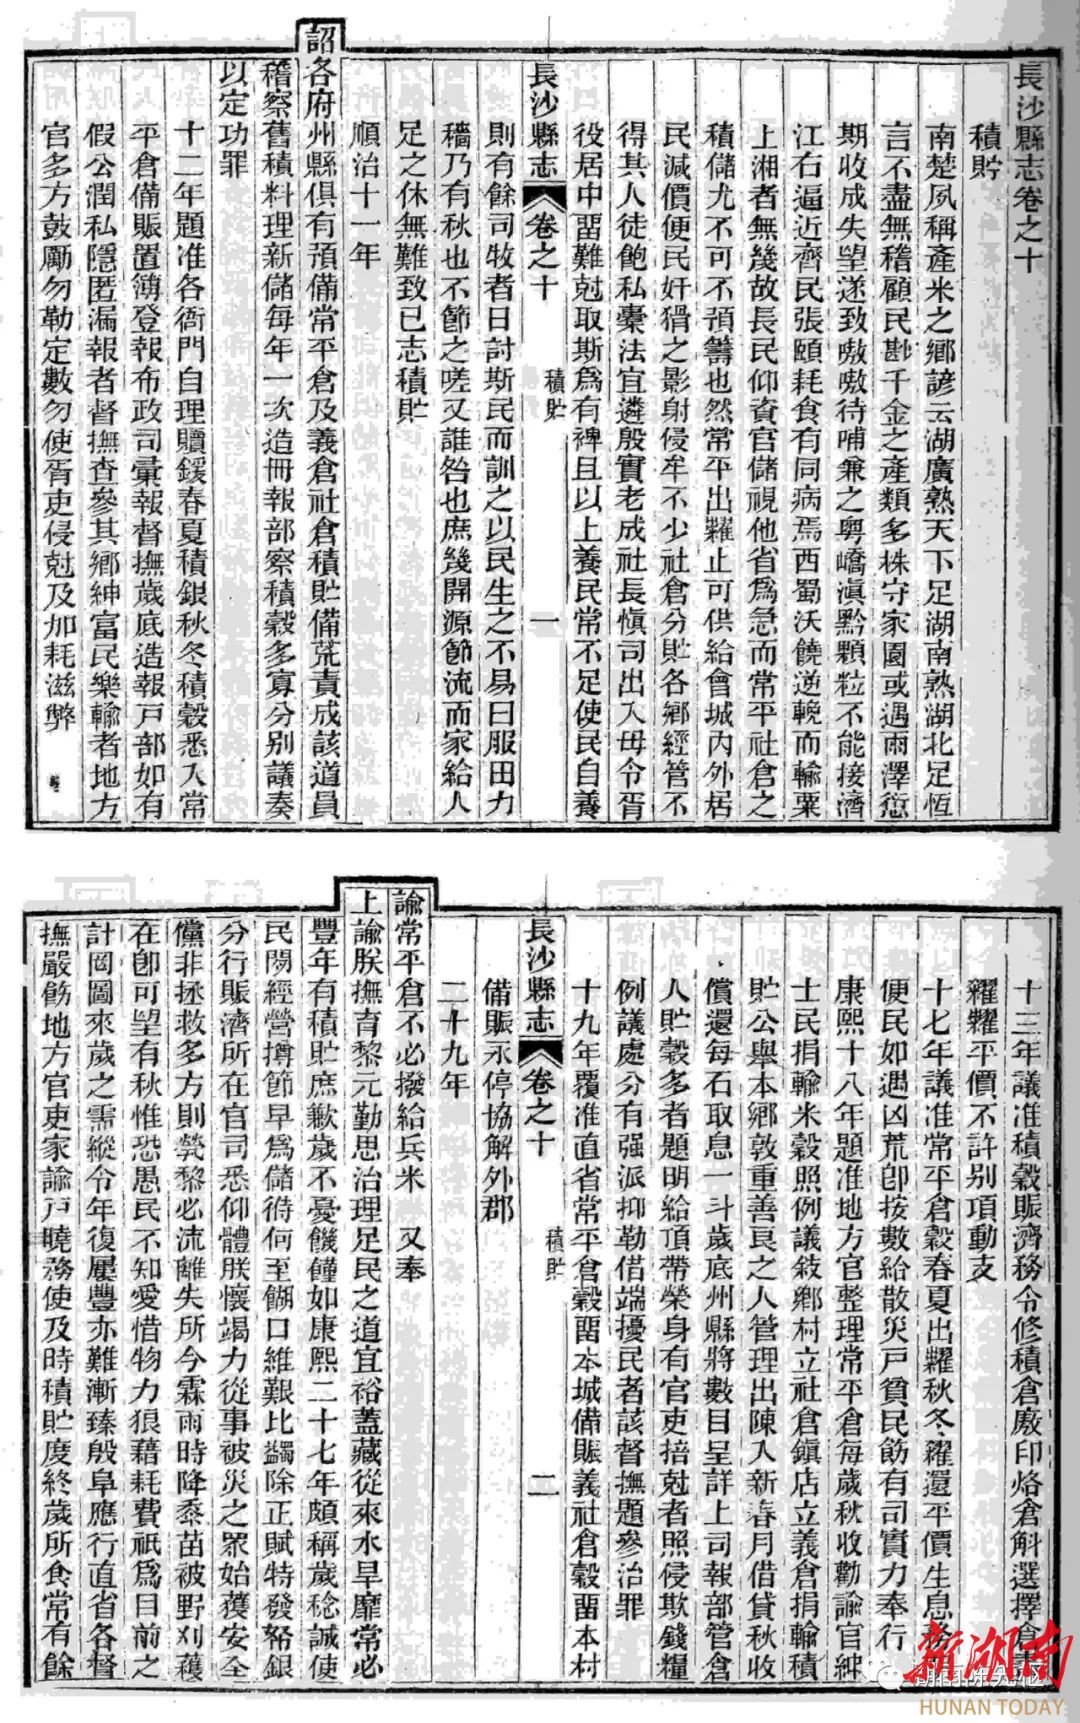 長沙縣志卷之十
積貯
南楚夙稱產米之鄉諺云湖廣熟天下足湖南熟湖北足恆
言不盡無稽顧民尠千金之產類多株守家園或遇雨澤愆
期收成失望遂致嗷嗷待哺兼之粵嶠滇黔顆粒不能接濟
江右逼近齊民張頤耗食有同病焉西蜀沃饒逆輓而輸粟
上湘者無幾故長民仰資官儲視他省爲急而常平社倉之
積儲尤不可不預籌也然常平出糶止可供給會城內外居
民減價便民奸猾之影射侵牟不少社倉分貯各鄉經管不
得其人徒飽私橐法宜遴殷實老成社長愼司出入毋令胥
役居中畱難尅取斯爲有裨且以上養民常不足使民自養
長沙縣志 卷之十 積貯 一
則有餘司牧者日討斯民而訓之以民生之不易曰服田力
穡乃有秋也不節之嗟又誰咎也庶幾開源節流而家給人
足之休無難致已志積貯
順治十一年
詔各府州縣俱有預備常平倉及義倉社倉積貯備荒責成該道員
稽察舊積料理新儲每年一次造冊報部察積穀多寡分別議奏
以定功罪
十二年題准各衙門自理贖鍰春夏積銀秋冬積穀悉入常
平倉備賑置簿登報布政司彙報督撫歲底造報戸部如有
假公潤私隱匿漏報者督撫查參其鄉紳富民樂輸者地方
官多方鼓勵勿勒定數勿使胥吏侵尅及加耗滋弊
十三年議准積穀賑濟務令修積倉廒印烙倉斛選擇倉
糴糶平價不許別項動支
十七年議准常平倉穀春夏出糶秋冬糴還平價生息務
便民如遇凶荒卽按數給散災戸貧民飭有司實力奉行
康熙十八年題准地方官整理常平倉每歲秋收勸諭官紳
士民捐輸米穀照例議敘鄉村立社倉鎮店立義倉捐輸積
貯公舉本鄉敦重善良之人管理出陳入新春月借貸秋收
償還每石取息一斗歲底州縣將數目呈詳上司報部管倉
人貯穀多者題明給頂帶榮身有官吏掊尅者照侵欺錢糧
例議處分有强派抑勒借端擾民者該督撫題參治罪
十九年覆准直省常平倉穀畱本城備賑義社倉穀畱本村
長沙縣志 卷之十 積貯 二
備賑永停協解外郡
二十九年
諭常平倉不必撥給兵米 又奉
上諭朕撫育黎元勤思治理足民之道宜裕蓋藏從來水旱靡常必
豐年有積貯庶歉歲不憂饑饉如康熙二十七年頗稱歲稔誠使
民間經營撙節早爲儲偫何至餬口維艱比蠲除正賦特發帑銀
分行賑濟所在官司悉仰體朕懷竭力從事被災之眾始獲安全
儻非拯救多方則煢黎必流離失所今霖雨時降黍苗被野刈穫
在卽可望有秋惟恐愚民不知愛惜物力狼藉耗費祇爲目前之
計罔圖來歲之需縱令年復屢豐亦難漸臻殷阜應行直省各督
撫嚴飭地方官吏家諭戸曉務使及時積貯度終歲所食常有餘
新湖南
HUNAN TODAY